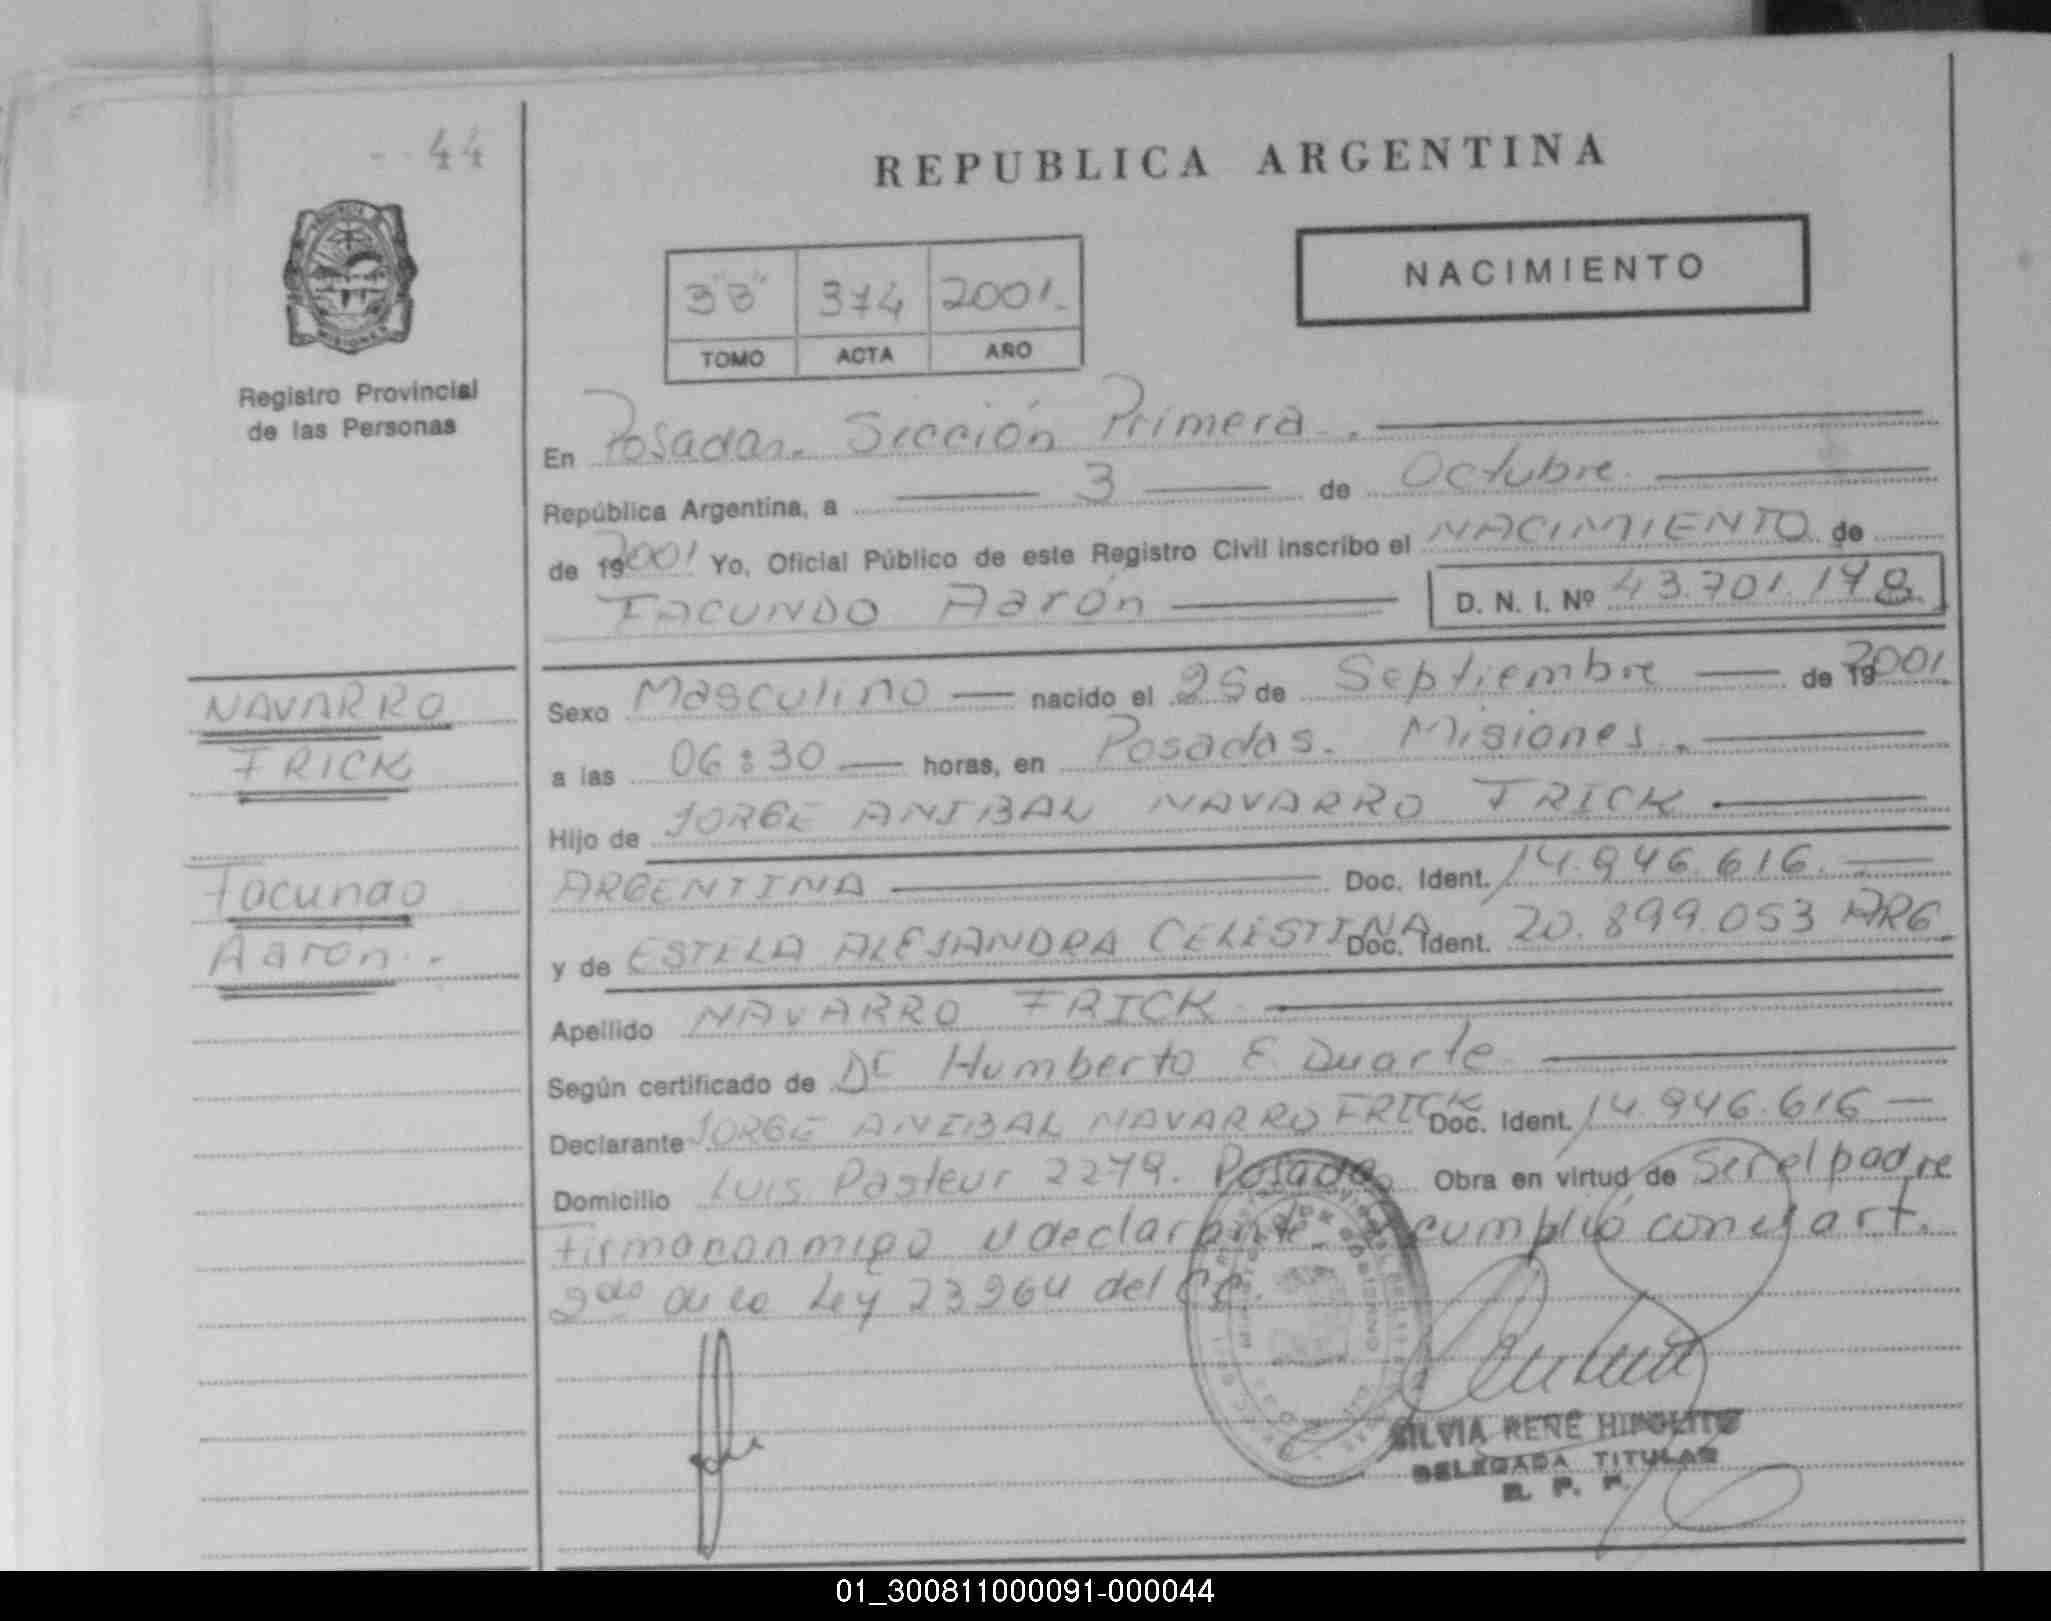 44
REPUBLICA ARGENTINA
NACIMIENTO
3"B" 374 2001.
TOMO ACTA AÑO
Registro Provincial
de las Personas
En Posadas. Sección Primera.
República Argentina, a 3 de Octubre
de 192001 Yo, Oficial Público de este Registro Civil inscribo el NACIMIENTO de
FACUNDO Aarón D. N. I. Nº 43.701.178
NAVARRO
FRICK
Facundo
Aaron.-
Sexo Masculino nacido el 25 de Septiembre de 192001.
a las 06:30 horas, en Posadas. Misiones.
Hijo de JORGE ANIBAL NAVARRO FRICK
ARGENTINA Doc. Ident. 14.946.616.
y de ESTELA ALEJANDRA CELESTINA Doc. Ident. 20.899.053 ARG
Apellido NAVARRO FRICK
Según certificado de Dr Humberto E. Duarte
Declarante JORGE ANIBAL NAVARRO FRICK Doc. Ident. 14.946.616
Domicilio Luis Pasteur 2279. Posadas Obra en virtud de Ser el padre
Firma conmigo el declarante. cumplió con el art.
2do de la Ley 23264 del C.C.
SILVIA RENE HIPOLITO
DELEGADA TITULAR
R. P. P.
01_300811000091-000044